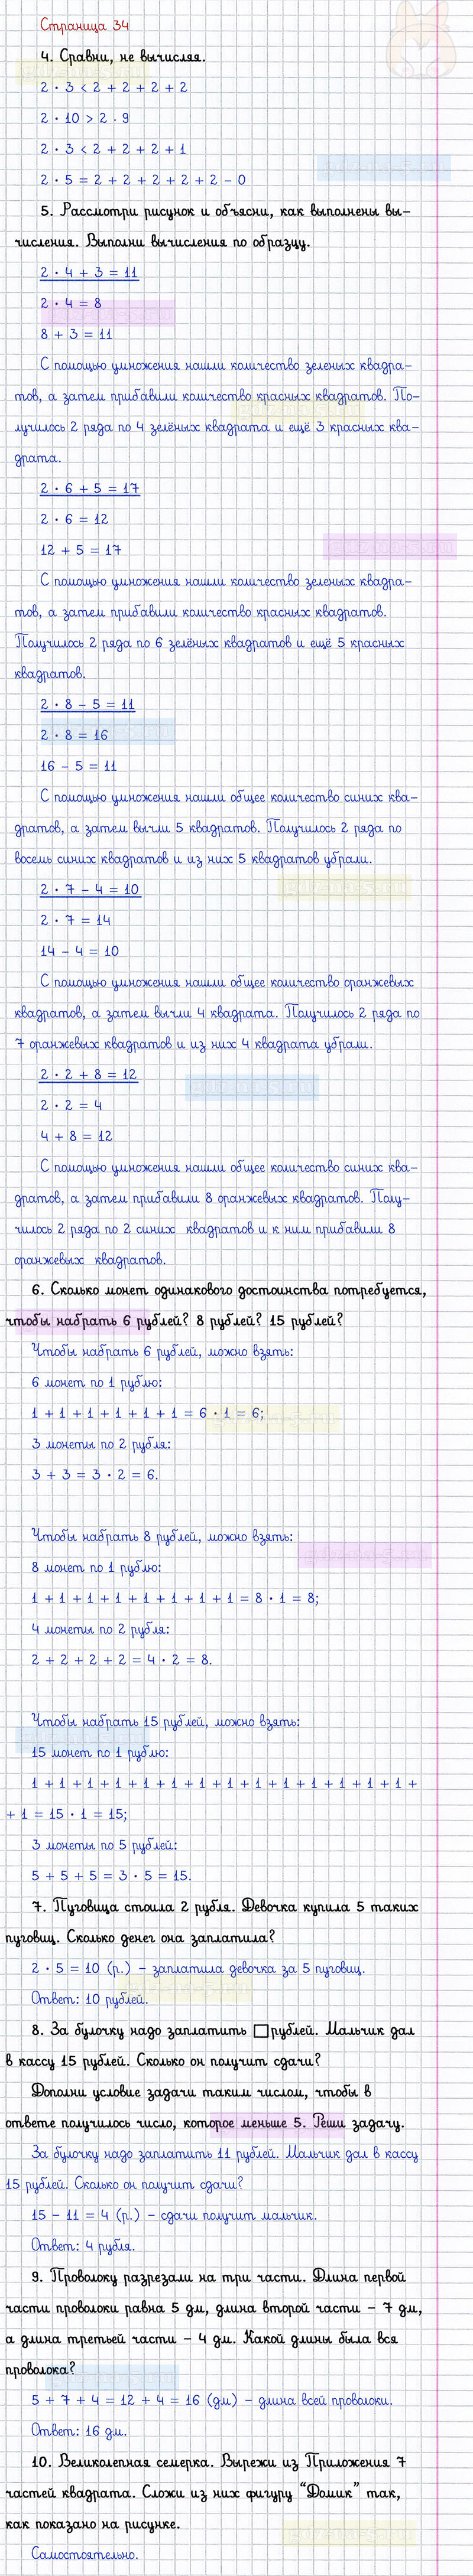 Страница 34
4. Сравни, не вычисляя.
2 · 3 < 2 + 2 + 2 + 2
2 · 10 > 2 · 9
2 · 3 < 2 + 2 + 2 + 1
2 · 5 = 2 + 2 + 2 + 2 + 2 – 0
5. Рассмотри рисунок и объясни, как выполнены вы-
числения. Выполни вычисления по образцу.
2 · 4 + 3 = 11
2 · 4 = 8
8 + 3 = 11
С помощью умножения нашли количество зеленых квадра-
тов, а затем прибавили количество красных квадратов. По-
лучилось 2 ряда по 4 зелёных квадрата и ещё 3 красных ква-
драта.
2 · 6 + 5 = 17
2 · 6 = 12
12 + 5 = 17
С помощью умножения нашли количество зеленых квадра-
тов, а затем прибавили количество красных квадратов.
Получилось 2 ряда по 6 зелёных квадратов и ещё 5 красных
квадратов.
2 · 8 – 5 = 11
2 · 8 = 16
16 – 5 = 11
С помощью умножения нашли общее количество синих ква-
дратов, а затем вычли 5 квадратов. Получилось 2 ряда по
восемь синих квадратов и из них 5 квадратов убрали.
2 · 7 – 4 = 10
2 · 7 = 14
14 – 4 = 10
С помощью умножения нашли общее количество оранжевых
квадратов, а затем вычли 4 квадрата. Получилось 2 ряда по
7 оранжевых квадратов и из них 4 квадрата убрали.
2 · 2 + 8 = 12
2 · 2 = 4
4 + 8 = 12
С помощью умножения нашли общее количество синих ква-
дратов, а затем прибавили 8 оранжевых квадратов. Полу-
чилось 2 ряда по 2 синих квадратов и к ним прибавили 8
оранжевых квадратов.
6. Сколько монет одинакового достоинства потребуется,
чтобы набрать 6 рублей? 8 рублей? 15 рублей?
Чтобы набрать 6 рублей, можно взять:
6 монет по 1 рублю:
1 + 1 + 1 + 1 + 1 + 1 = 6 · 1 = 6;
3 монеты по 2 рубля:
3 + 3 = 3 · 2 = 6.
Чтобы набрать 8 рублей, можно взять:
8 монет по 1 рублю:
1 + 1 + 1 + 1 + 1 + 1 + 1 + 1 = 8 · 1 = 8;
4 монеты по 2 рубля:
2 + 2 + 2 + 2 = 4 · 2 = 8.
Чтобы набрать 15 рублей, можно взять:
15 монет по 1 рублю:
1 + 1 + 1 + 1 + 1 + 1 + 1 + 1 + 1 + 1 + 1 + 1 + 1 + 1 +
+ 1 = 15 · 1 = 15;
3 монеты по 5 рублей:
5 + 5 + 5 = 3 · 5 = 15.
7. Пуговица стоила 2 рубля. Девочка купила 5 таких
пуговиц. Сколько денег она заплатила?
2 · 5 = 10 (р.) – заплатила девочка за 5 пуговиц.
Ответ: 10 рублей.
8. За булочку надо заплатить □ рублей. Мальчик дал
в кассу 15 рублей. Сколько он получит сдачи?
Дополни условие задачи таким числом, чтобы в
ответе получилось число, которое меньше 5. Реши задачу.
За булочку надо заплатить 11 рублей. Мальчик дал в кассу
15 рублей. Сколько он получит сдачи?
15 – 11 = 4 (р.) – сдачи получит мальчик.
Ответ: 4 рубля.
9. Проволоку разрезали на три части. Длина первой
части проволоки равна 5 дм, длина второй части – 7 дм,
а длина третьей части – 4 дм. Какой длины была вся
проволока?
5 + 7 + 4 = 12 + 4 = 16 (дм) – длина всей проволоки.
Ответ: 16 дм.
10. Великолепная семерка. Вырежи из Приложения 7
частей квадрата. Сложи из них фигуру “Домик” так,
как показано на рисунке.
Самостоятельно.